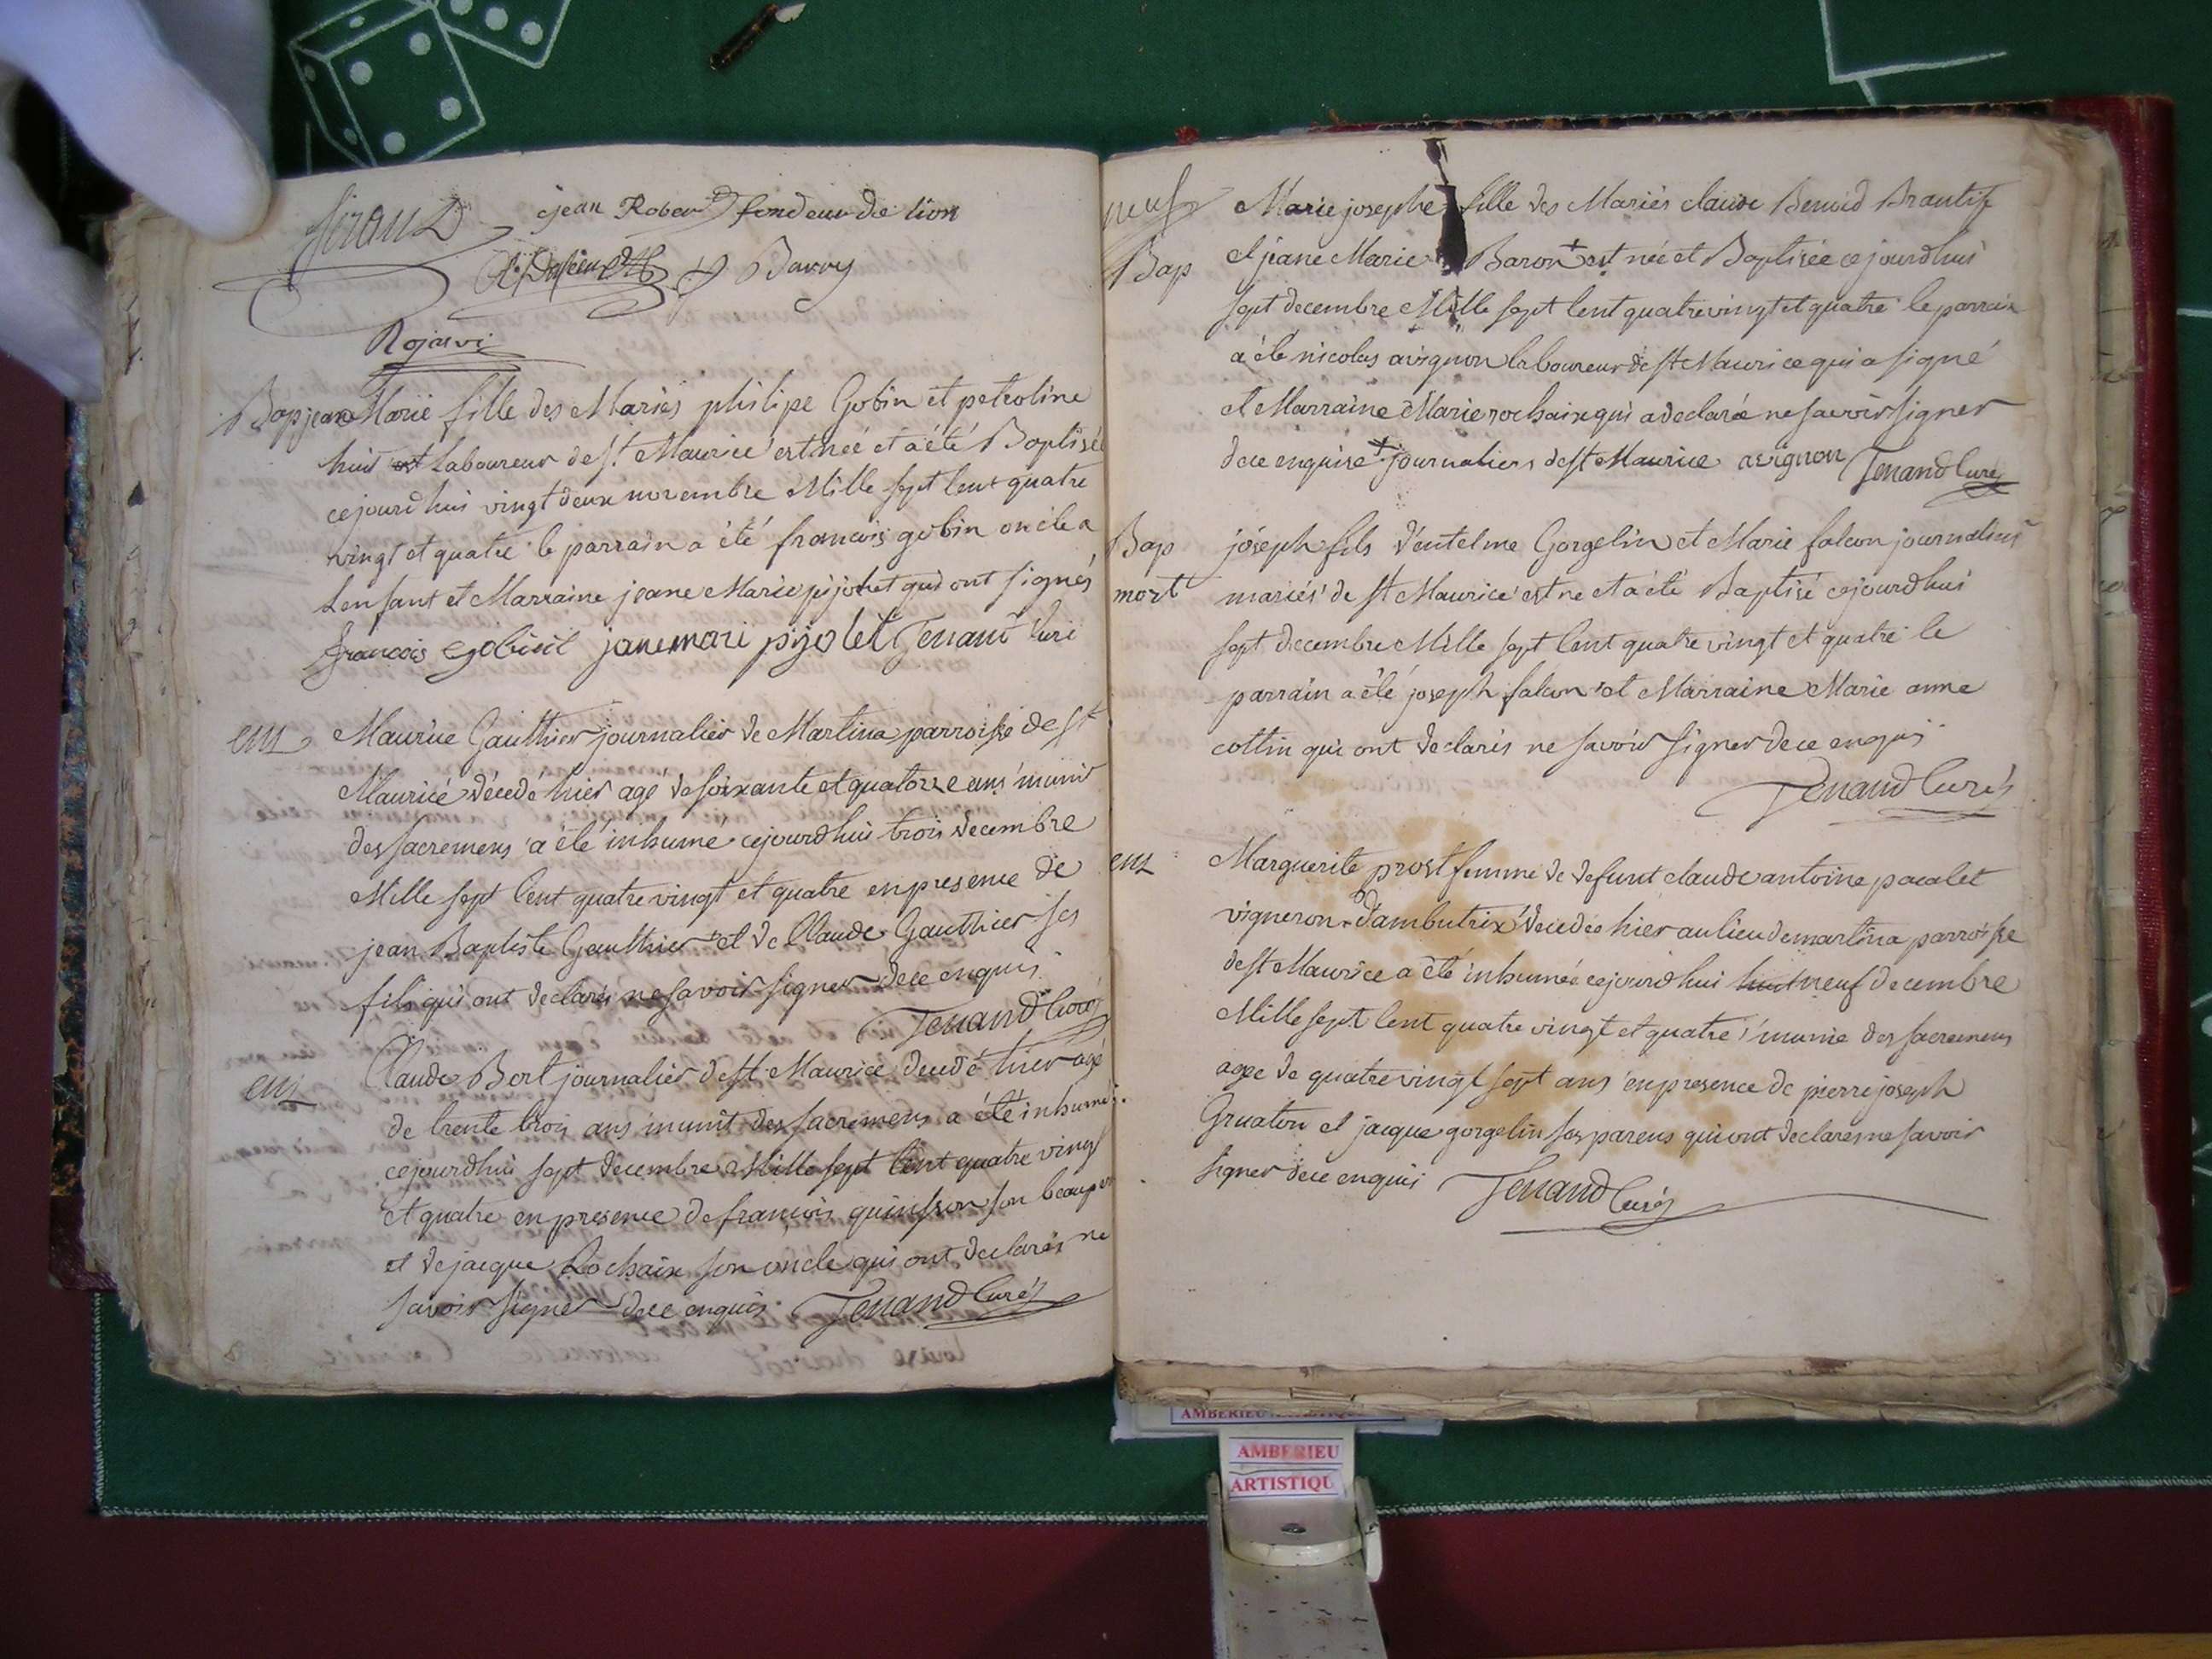 Sirand
jean Robert fondeur de lion
Barry
Bap jeane Marie fille des Mariés philipe Gobin et petroline
huit est Laboureur de st Maurice est née et a été Baptisée
cejourdhui vingt deux novembre Mille sept Cent quatre
vingt et quatre le parrain a été francois gobin oncle a
Lenfant et Marraine jeane Marie pijolet qui ont signés
francois gobin jane mari pijolet Tenand Curé
ent Maurice Gauthier journalier de Martina parroisse de st
Maurice décedé hier agé de soixante et quatorze ans munir
des sacremens a été inhumé cejourdhui trois decembre
Mille sept Cent quatre vingt et quatre en presence de
jean Baptiste Gauthier et de Claude Gauthier ses
fils qui ont declarés ne savoir signer de ce enquis
Tenand Curé
ent Claude Bert journalier de st Maurice decedé hier agé
de trente trois ans munit des sacremens a été inhumé
cejourdhui sept decembre Mille sept Cent quatre vingt
et quatre en presence de francois quinsson son beaupere
et de jacque Rochaix son oncle qui ont declarés ne
savoir signer de ce enquis Tenand Curé
neuf Marie josephe fille des Mariés claude Benoid
Bap et jeane Marie Baron + est née et Baptisée cejourdhui
sept decembre Mille sept Cent quatre vingt et quatre le parrain
a été nicolas avignon laboureur de st Maurice qui a signé
et Marraine Marie rochaix qui a declaré ne savoir signer
de ce enquise + journaliers de st Maurice avignon Tenand Curé
Bap joseph fils d'entelme Gorgelin et Marie falcon journaliers
mort mariés de st Maurice est ne et a été Baptisé cejourdhui
sept decembre Mille sept Cent quatre vingt et quatre le
parrain a été joseph falcon et Marraine Marie anne
cottin qui ont declarés ne savoir signer de ce enquis
Tenand Curé
ent Marguerite prost femme de defunt claude antoine pacalet
vigneron d'ambutrix decedée hier au lieu de martina parroisse
de st Maurice a été inhumée cejourdhui huit neuf decembre
Mille sept Cent quatre vingt et quatre munie des sacremens
agee de quatre vingt sept ans en presence de pierre joseph
Gruaton et jacque gorgelin ses parens qui ont declarés ne savoir
signer de ce enquis Tenand Curé
AMBERIEU
ARTISTIQU